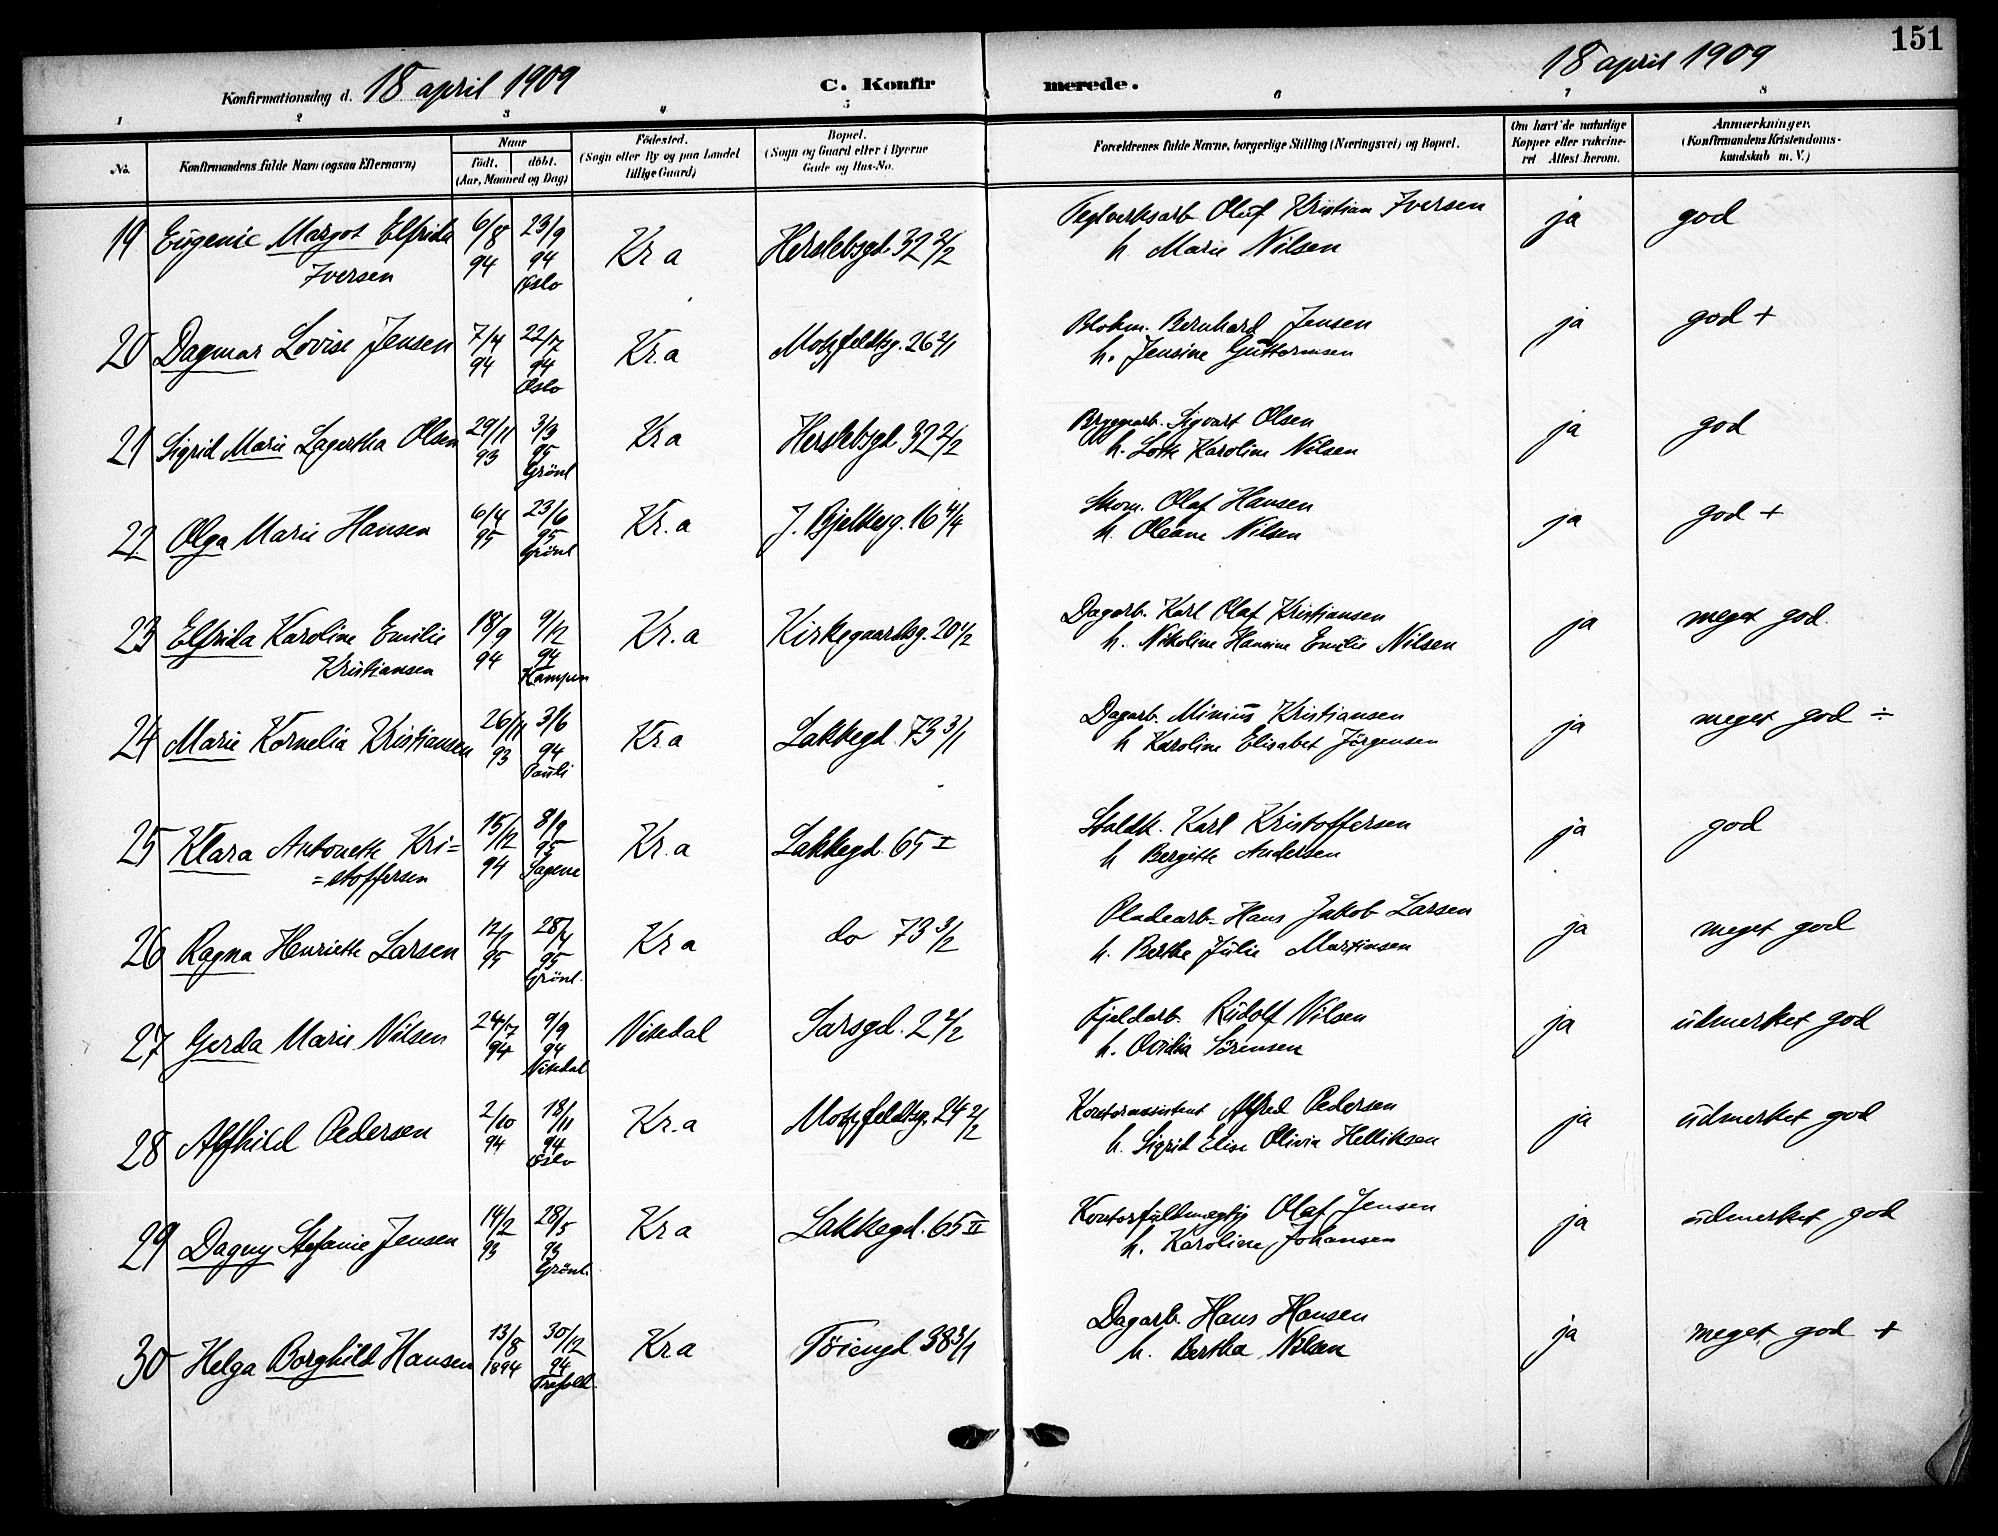 151
Konfirmationsdag d. 18 april 1909 C. Konfirmerede. 18 april 1909
1 2 3 4 5 6 7 8
No. Konfirmandens fulde Navn (ogsaa Efternavn) Naar født. døbt. (Aar, Maaned og Dag) Fødested. (Sogn eller By og paa Landet tillige Gaard) Bopæl. (Sogn og Gaard eller i Byerne Gade og Hus-No. Forældrenes fulde Navne, borgerlige Stilling (Næringsvei) og Bopæl. Om havt de naturlige Kopper eller vaccineret. Attest herom. Anmærkninger. (Konfirmandens Kristendomskundskab m. V.)
19 Eugenie Margot Elfrida 6/8 23/9 Kr a Herslebsgd. 32 2/2 Teglverksarb Oluf Kristian Iversen ja god
Iversen 94 94 Oslo h Marie Nilsen
20 Dagmar Lovise Jensen 7/4 22/7 Kr.a Motzfeldtsg. 26 2/1 Blokm. Bernhard Jensen ja god +
94 94 Oslo h. Jensine Guttormsen
21 Sigrid Marie Lagertha Olsen 29/11 3/3 Kr a Herslebsgd 32 2/2 Bryggearb. Sigvart Olsen ja god
93 95 Grønl h. Lotte Karoline Nilsen
22 Olga Marie Hansen 6/4 23/6 Kr.a J. Bjelkesg. 16 4/4 Skom. Olaf Hansen ja god +
95 95 Grønl h. Oleane Nilsen
23 Elfrida Karoline Emilie 18/9 9/12 Kr.a Kirkegaardsg. 20 1/2 Dagarb. Karl Olaf Kristiansen ja meget god.
Kristiansen 94 94 Kampen h. Nikoline Hansine Emilie Nilsen
24 Marie Kornelia Kristiansen 26/11 3/6 Kr.a Lakkegd. 73 3/1 Dagarb. Minius Kristiansen ja meget god ÷
93 94 Pauli h Karoline Elisabet Jørgensen
25 Klara Antonette Kri= 15/12 8/9 Kr.a Lakkegd. 65 I Staldk. Karl Kristoffersen ja god
=stoffersen 94 95 Sagene h Bergitte Andersen
26 Ragna Henriette Larsen 12/1 28/4 Kr a do 73 3/2 Pladearb. Hans Jakob Larsen ja meget god
95 95 Grønl. h. Berthe Julie Martinsen
27 Gerda Marie Nilsen 24/7 9/9 Nitedal Sarsgd. 2 2/2 Fjeldarb. Rudolf Nilsen ja udmerket god
94 94 Nitedal h. Ovidia Sørensen
28 Alfhild Pedersen 2/10 18/11 Kr.a Motzfeldtsg. 24 2/2 Kontorassistent Alfred Pedersen ja udmerket god
94 94 Oslo h. Sigrid Elise Olivia Helliksen
29 Dagny Stefanie Jensen 14/2 28/5 Kr a Lakkegd. 65 II Kontorfuldmægtig Olaf Jensen ja udmerket god
93 93 Grønl. h. Karoline Johansen
30 Helga Borghild Hansen 13/8 30/12 Kr a Tøiengd 38 3/1 Dagarb. Hans Hansen ja meget god +
1894 94 Trefold. h. Bertha Nilsen